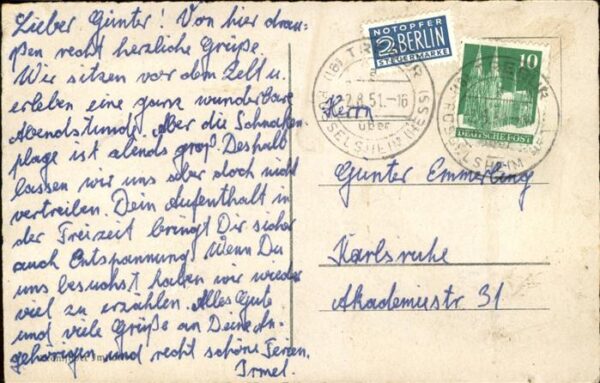 Lieber Günter! Von hier drau-
ßen recht herzliche Grüße.
Wir sitzen vor dem Zelt u.
erleben eine ganz wunderbare
Abendstunde. Aber die Schnaken-
plage ist abends groß. Deshalb
lassen wir uns aber doch nicht
vertreiben. Dein Aufenthalt in
der Freizeit bringt Dir sicher
auch Entspannung. Wenn Du
uns besuchst haben wir wieder
viel zu erzählen. Alles Gute
und viele Grüße an Deine An-
gehörigen und recht schöne Ferien.
Irmel.
NOTOPFER
2 BERLIN
STEUERMARKE
10
DEUTSCHE POST
(16) TREBUR
2.8.51.-16
über
RÜSSELSHEIM (HESS)
RÜSSELSHEIM
Herrn
Günter Emmerling
Karlsruhe
Akademiestr 31